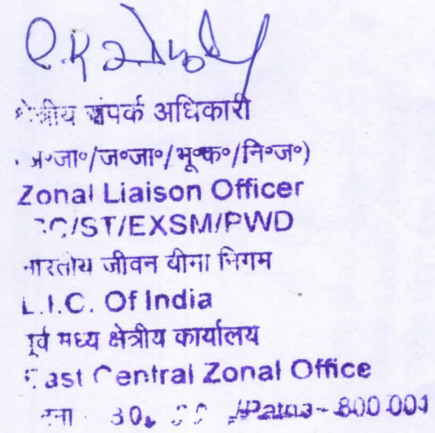 क्षेत्रीय संपर्क अधिकारी
अ॰जा॰/ज॰जा॰/भू॰क॰/नि॰ज॰)
Zonal Liaison Officer
SC/ST/EXSM/PWD
भारतीय जीवन बीमा निगम
L.I.C. Of India
पूर्व मध्य क्षेत्रीय कार्यालय
East Central Zonal Office
Patna - 800 001